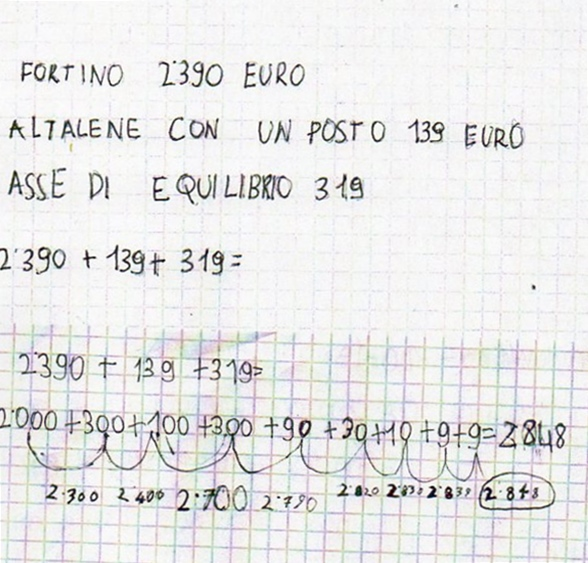 FORTINO 2˙390 EURO
ALTALENE CON UN POSTO 139 EURO
ASSE DI EQUILIBRIO 319
2˙390 + 139 + 319 =
2˙390 + 139 + 319 =
2˙000 + 300 + 100 + 300 + 90 + 30 + 10 + 9 + 9 = 2848
2˙300 2˙400 2˙700 2˙790 2˙820 2˙830 2˙839 2˙848